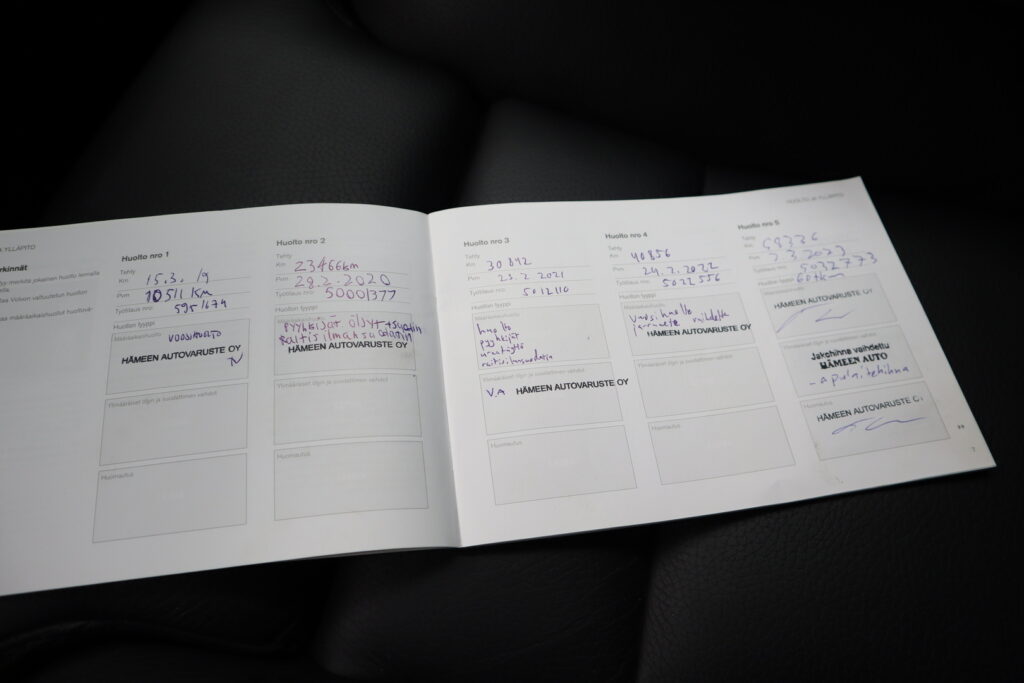 A YLLÄPITO
Huolto nro 1
Tehty
Km 15.3. /9
Pvm 10511 KM
Työtilaus nro: 595/674
Huollon tyyppi
Määräaikaishuolto
VUOSIHUOLTO
HÄMEEN AUTOVARUSTE OY
Ylimääräiset öljyn ja suodattimen vaihdot
Huomautus
Huolto nro 2
Tehty
Km 23466km
Pvm 28.2.2020
Työtilaus nro: 5000/377
Huollon tyyppi
Pyyhkijät öljyt + suodatin
Raitisilmasuodatin
HÄMEEN AUTOVARUSTE OY
Ylimääräiset öljyn ja suodattimen vaihdot
Huomautus
HUOLTO JA YLLÄPITO
Huolto nro 3
Tehty
Km 30842
Pvm 25.2.2021
Työtilaus nro: 5012110
Huollon tyyppi
Määräaikaishuolto
huolto
pyyhkijät
raitisilmasuodatin
Ylimääräiset öljyn ja suodattimen vaihdot
V.A HÄMEEN AUTOVARUSTE OY
Huomautus
Huolto nro 4
Tehty
Km 40856
Pvm 24.2.2022
Työtilaus nro: 5022556
Huollon tyyppi
Vuosihuolto
HÄMEEN AUTOVARUSTE OY
Ylimääräiset öljyn ja suodattimen vaihdot
Huomautus
Huolto nro 5
Tehty
Km
Pvm 2.3.2023
Työtilaus nro: 5032773
Huollon tyyppi 60tkm
HÄMEEN AUTOVARUSTE OY
Jakohihna vaihdettu
HÄMEEN AUTO
- apulaitehihna
Huomautus
HÄMEEN AUTOVARUSTE OY
7